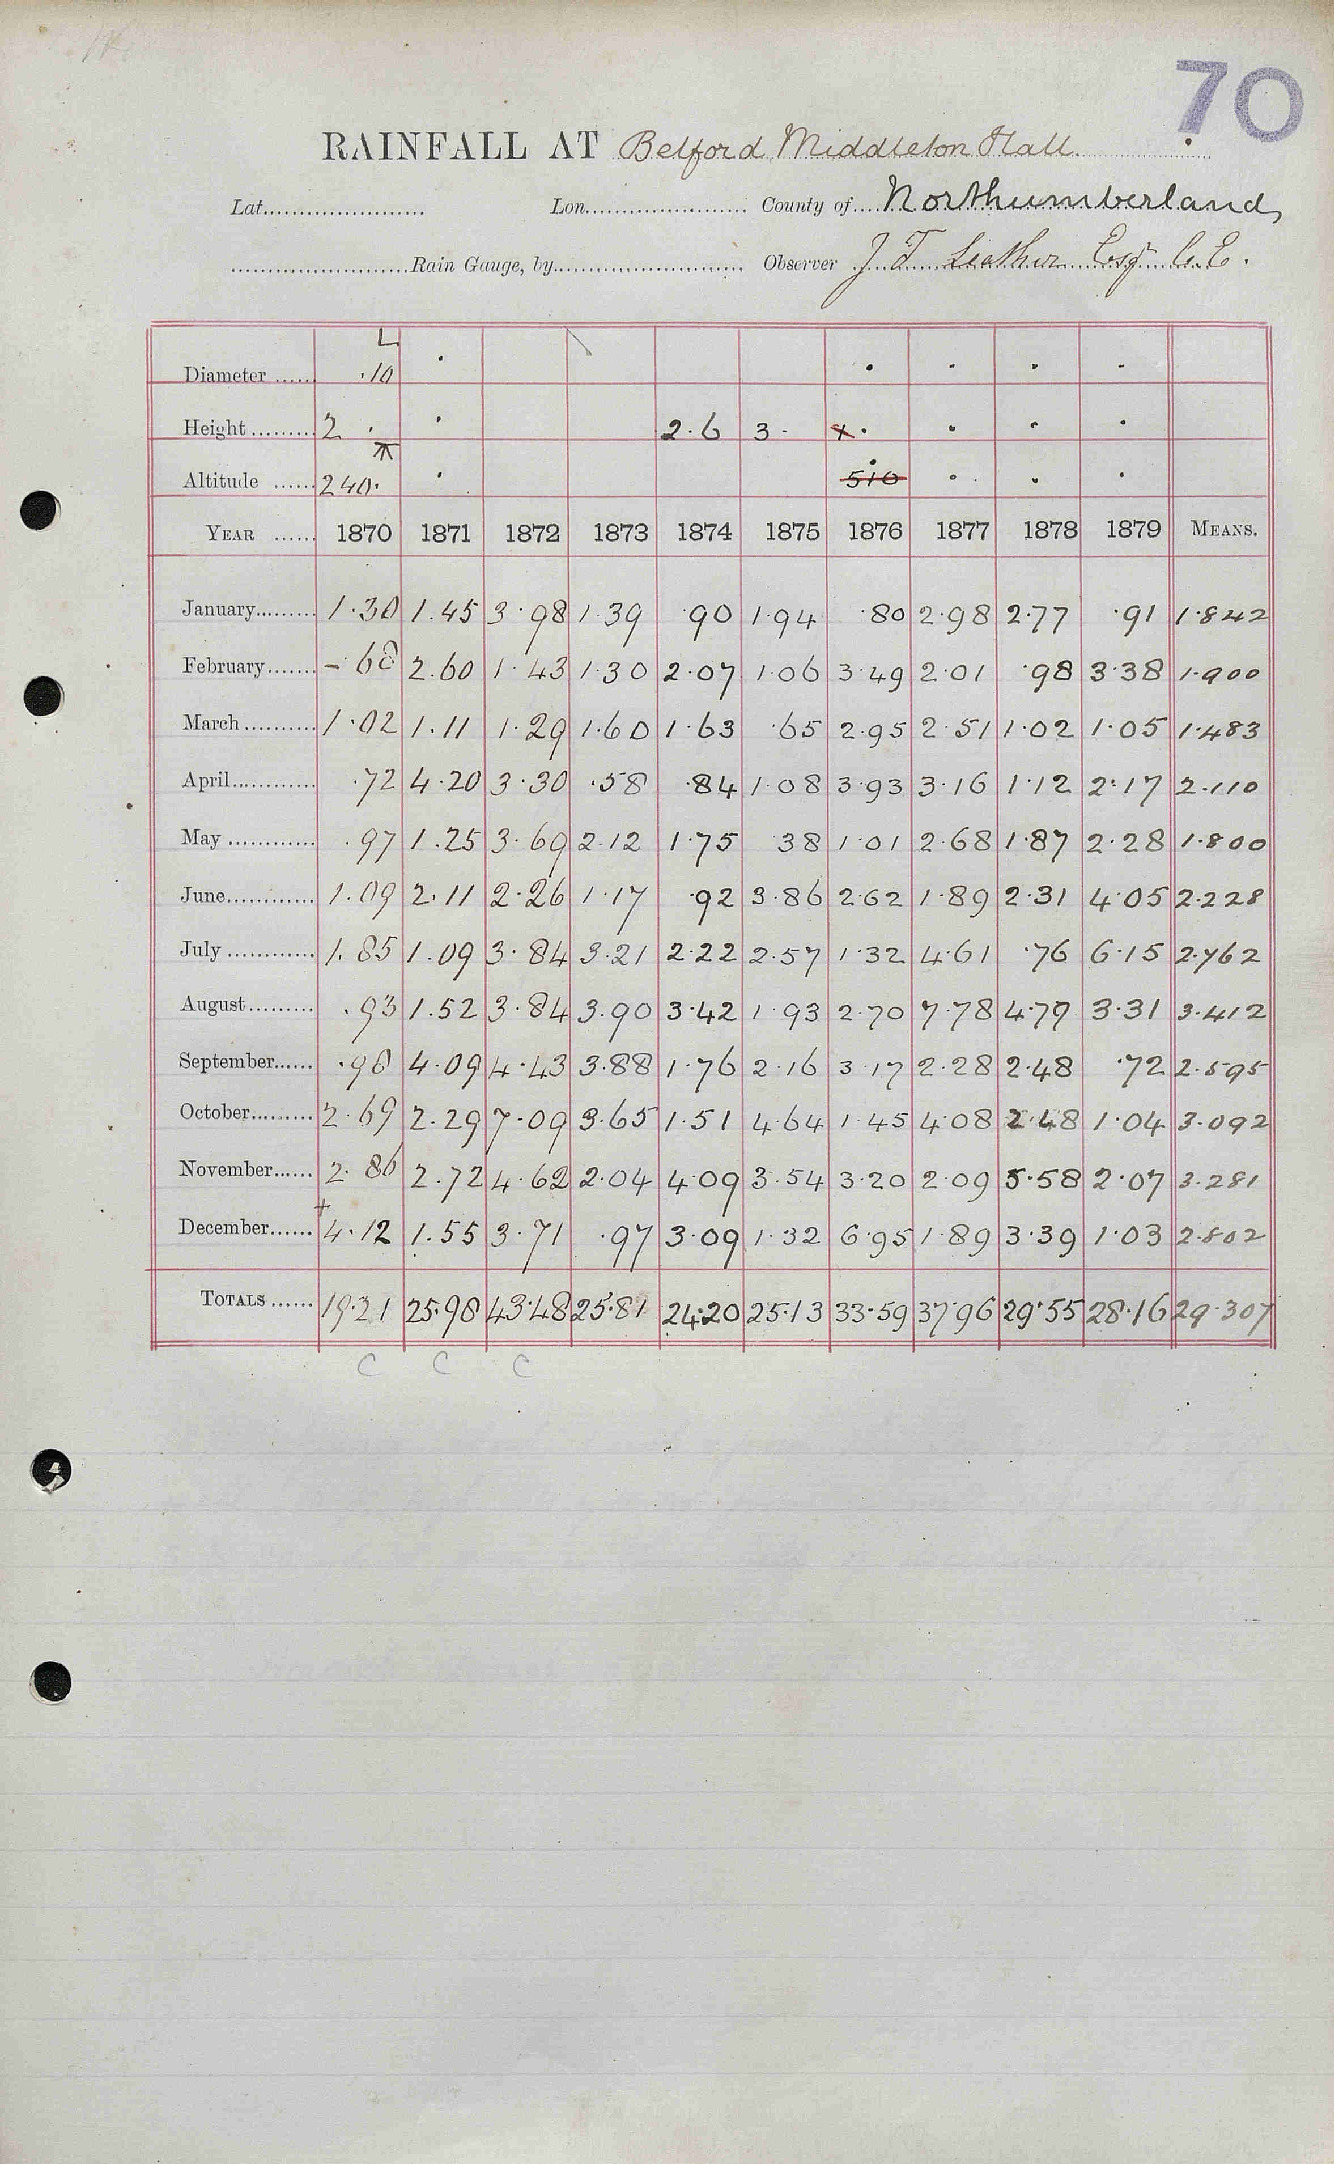 70
RAINFALL AT Belford Middleton Hall
Lat. Lon. County of Northumberland
Rain Gauge, by Observer J T Leather Esqr C.E.
Diameter ·10
Height 2 · 2·6 3 · x ·
Altitude 240· 510
YEAR 1870 1871 1872 1873 1874 1875 1876 1877 1878 1879 MEANS.
January 1·30 1.45 3·98 1·39 ·90 1·94 ·80 2·98 2·77 ·91 1·842
February - 68 2.60 1·43 1·30 2·07 1·06 3·49 2·01 ·98 3·38 1·900
March 1·02 1.11 1·29 1·60 1·63 ·65 2·95 2·51 1·02 1·05 1·483
April ·72 4·20 3·30 ·58 ·84 1·08 3·93 3·16 1·12 2·17 2·110
May ·97 1.25 3·69 2·12 1·75 38 1·01 2·68 1·87 2·28 1·800
June 1·09 2·11 2·26 1·17 ·92 3·86 2·62 1·89 2·31 4·05 2·228
July 1.85 1.09 3·84 3·21 2·22 2·57 1·32 4·61 ·76 6·15 2·762
August ·93 1.52 3·84 3·90 3·42 1·93 2·70 7·78 4·79 3·31 3·412
September ·98 4·09 4·43 3·88 1·76 2·16 3·17 2·28 2·48 ·72 2·595
October 2·69 2·29 7·09 3·65 1·51 4·64 1·45 4·08 2·48 1·04 3·092
November 2·86 2.72 4·62 2·04 4·09 3·54 3·20 2·09 5·58 2·07 3·281
+
December 4·12 1.55 3·71 ·97 3·09 1·32 6·95 1·89 3·39 1·03 2·802
TOTALS 19·21 25·98 43·48 25·81 24·20 25·13 33·59 37·96 29·55 28·16 29·307
C C C